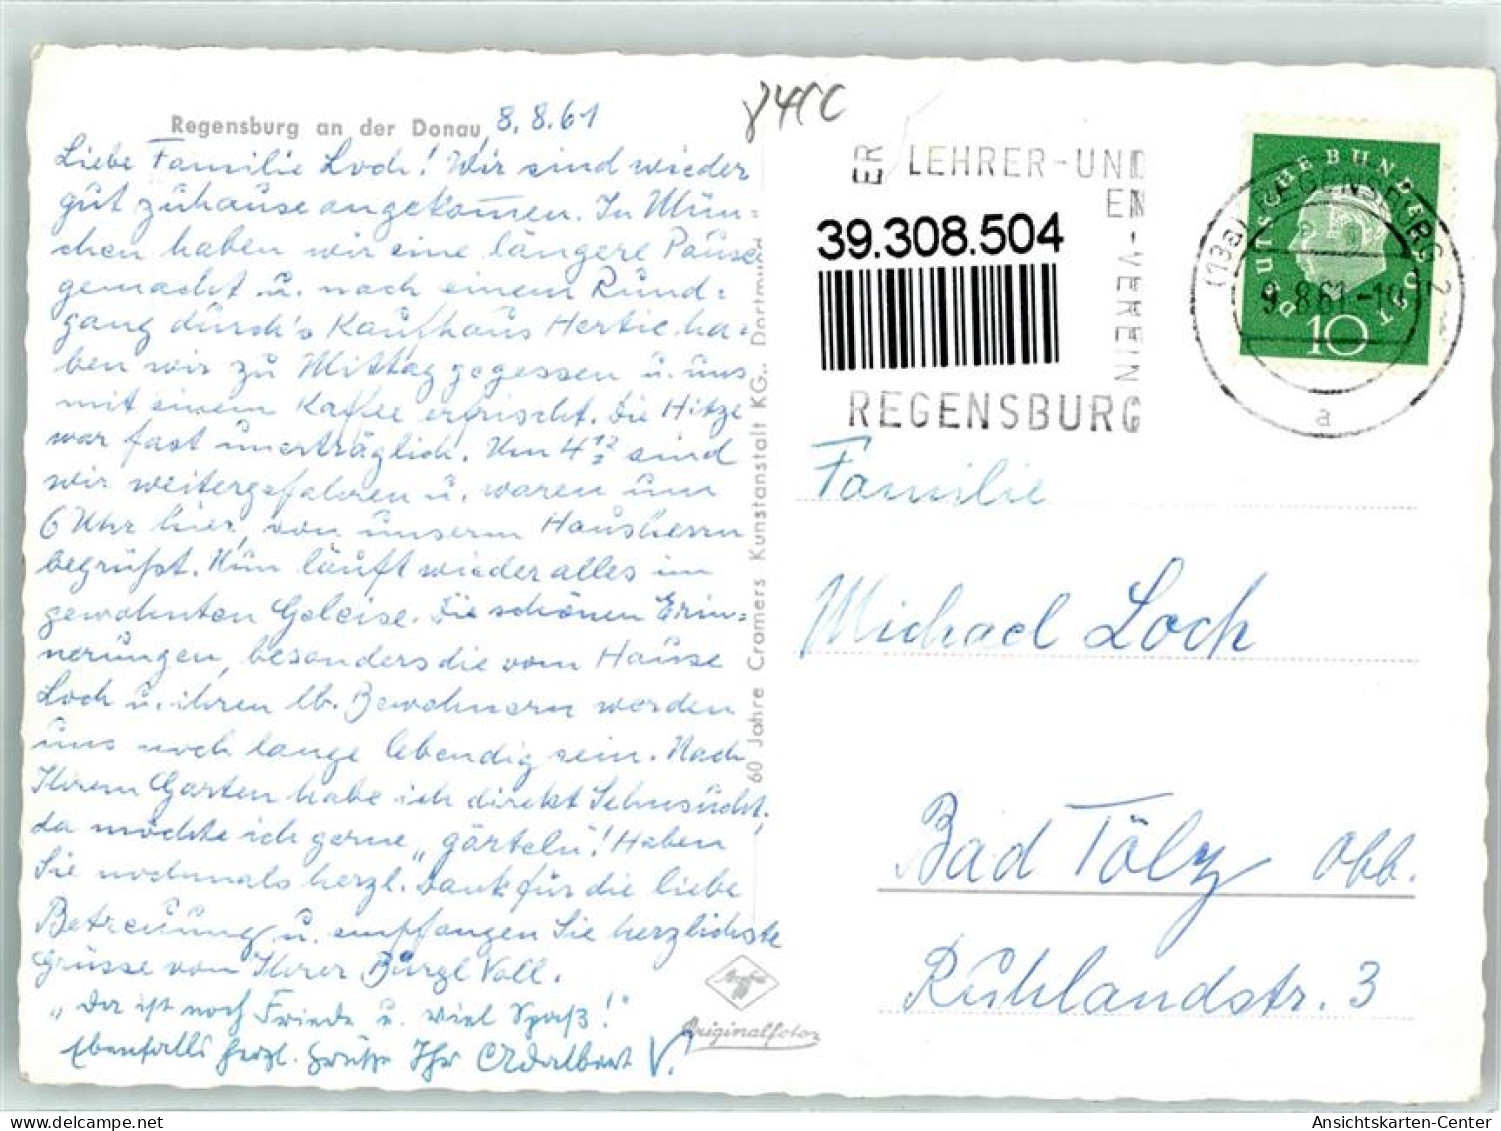 Regensburg an der Donau, 8.8.61
Liebe Familie Loch! Wir sind wieder
gut zuhause angekommen. In Mün=
chen haben wir eine längere Pause
gemacht u. nach einem Rund=
gang durch's Kaufhaus Hertie ha=
ben wir zu Mittag gegessen u. uns
mit einem Kaffee erfrischt. Die Hitze
war fast unerträglich. Um 4 1/2 sind
wir weitergefahren u. waren um
6 Uhr hier, von unserm Hausherrn
begrüßt. Nun läuft wieder alles im
gewohnten Geleise. Die schönen Erin=
nerungen, besonders die vom Hause
Loch u. ihren lb. Bewohnern werden
uns noch lange lebendig sein. Nach
Ihrem Garten habe ich direkt Sehnsucht,
da möchte ich gerne „garteln"! Haben
Sie nochmals herzl. Dank für die liebe
Betreuung u. empfangen Sie herzlichste
Grüsse von Ihrer Burgl Voll.
„Da ist noch Friede u. viel Spaß!"
Ebenfalls herzl. Grüße Ihr Adalbert V.
60 Jahre Cramers Kunstanstalt KG., Dortmund
Agfa
Originalfoto
ER LEHRER-UND
EN-VEREIN
REGENSBURG
39.308.504
DEUTSCHE BUNDESPOST
10
(13a) REGENSBURG 2
9.8.61-19
a
Familie
Michael Loch
Bad Tölz Obb.
Ruhlandstr. 3
Ansichtskarten-Center